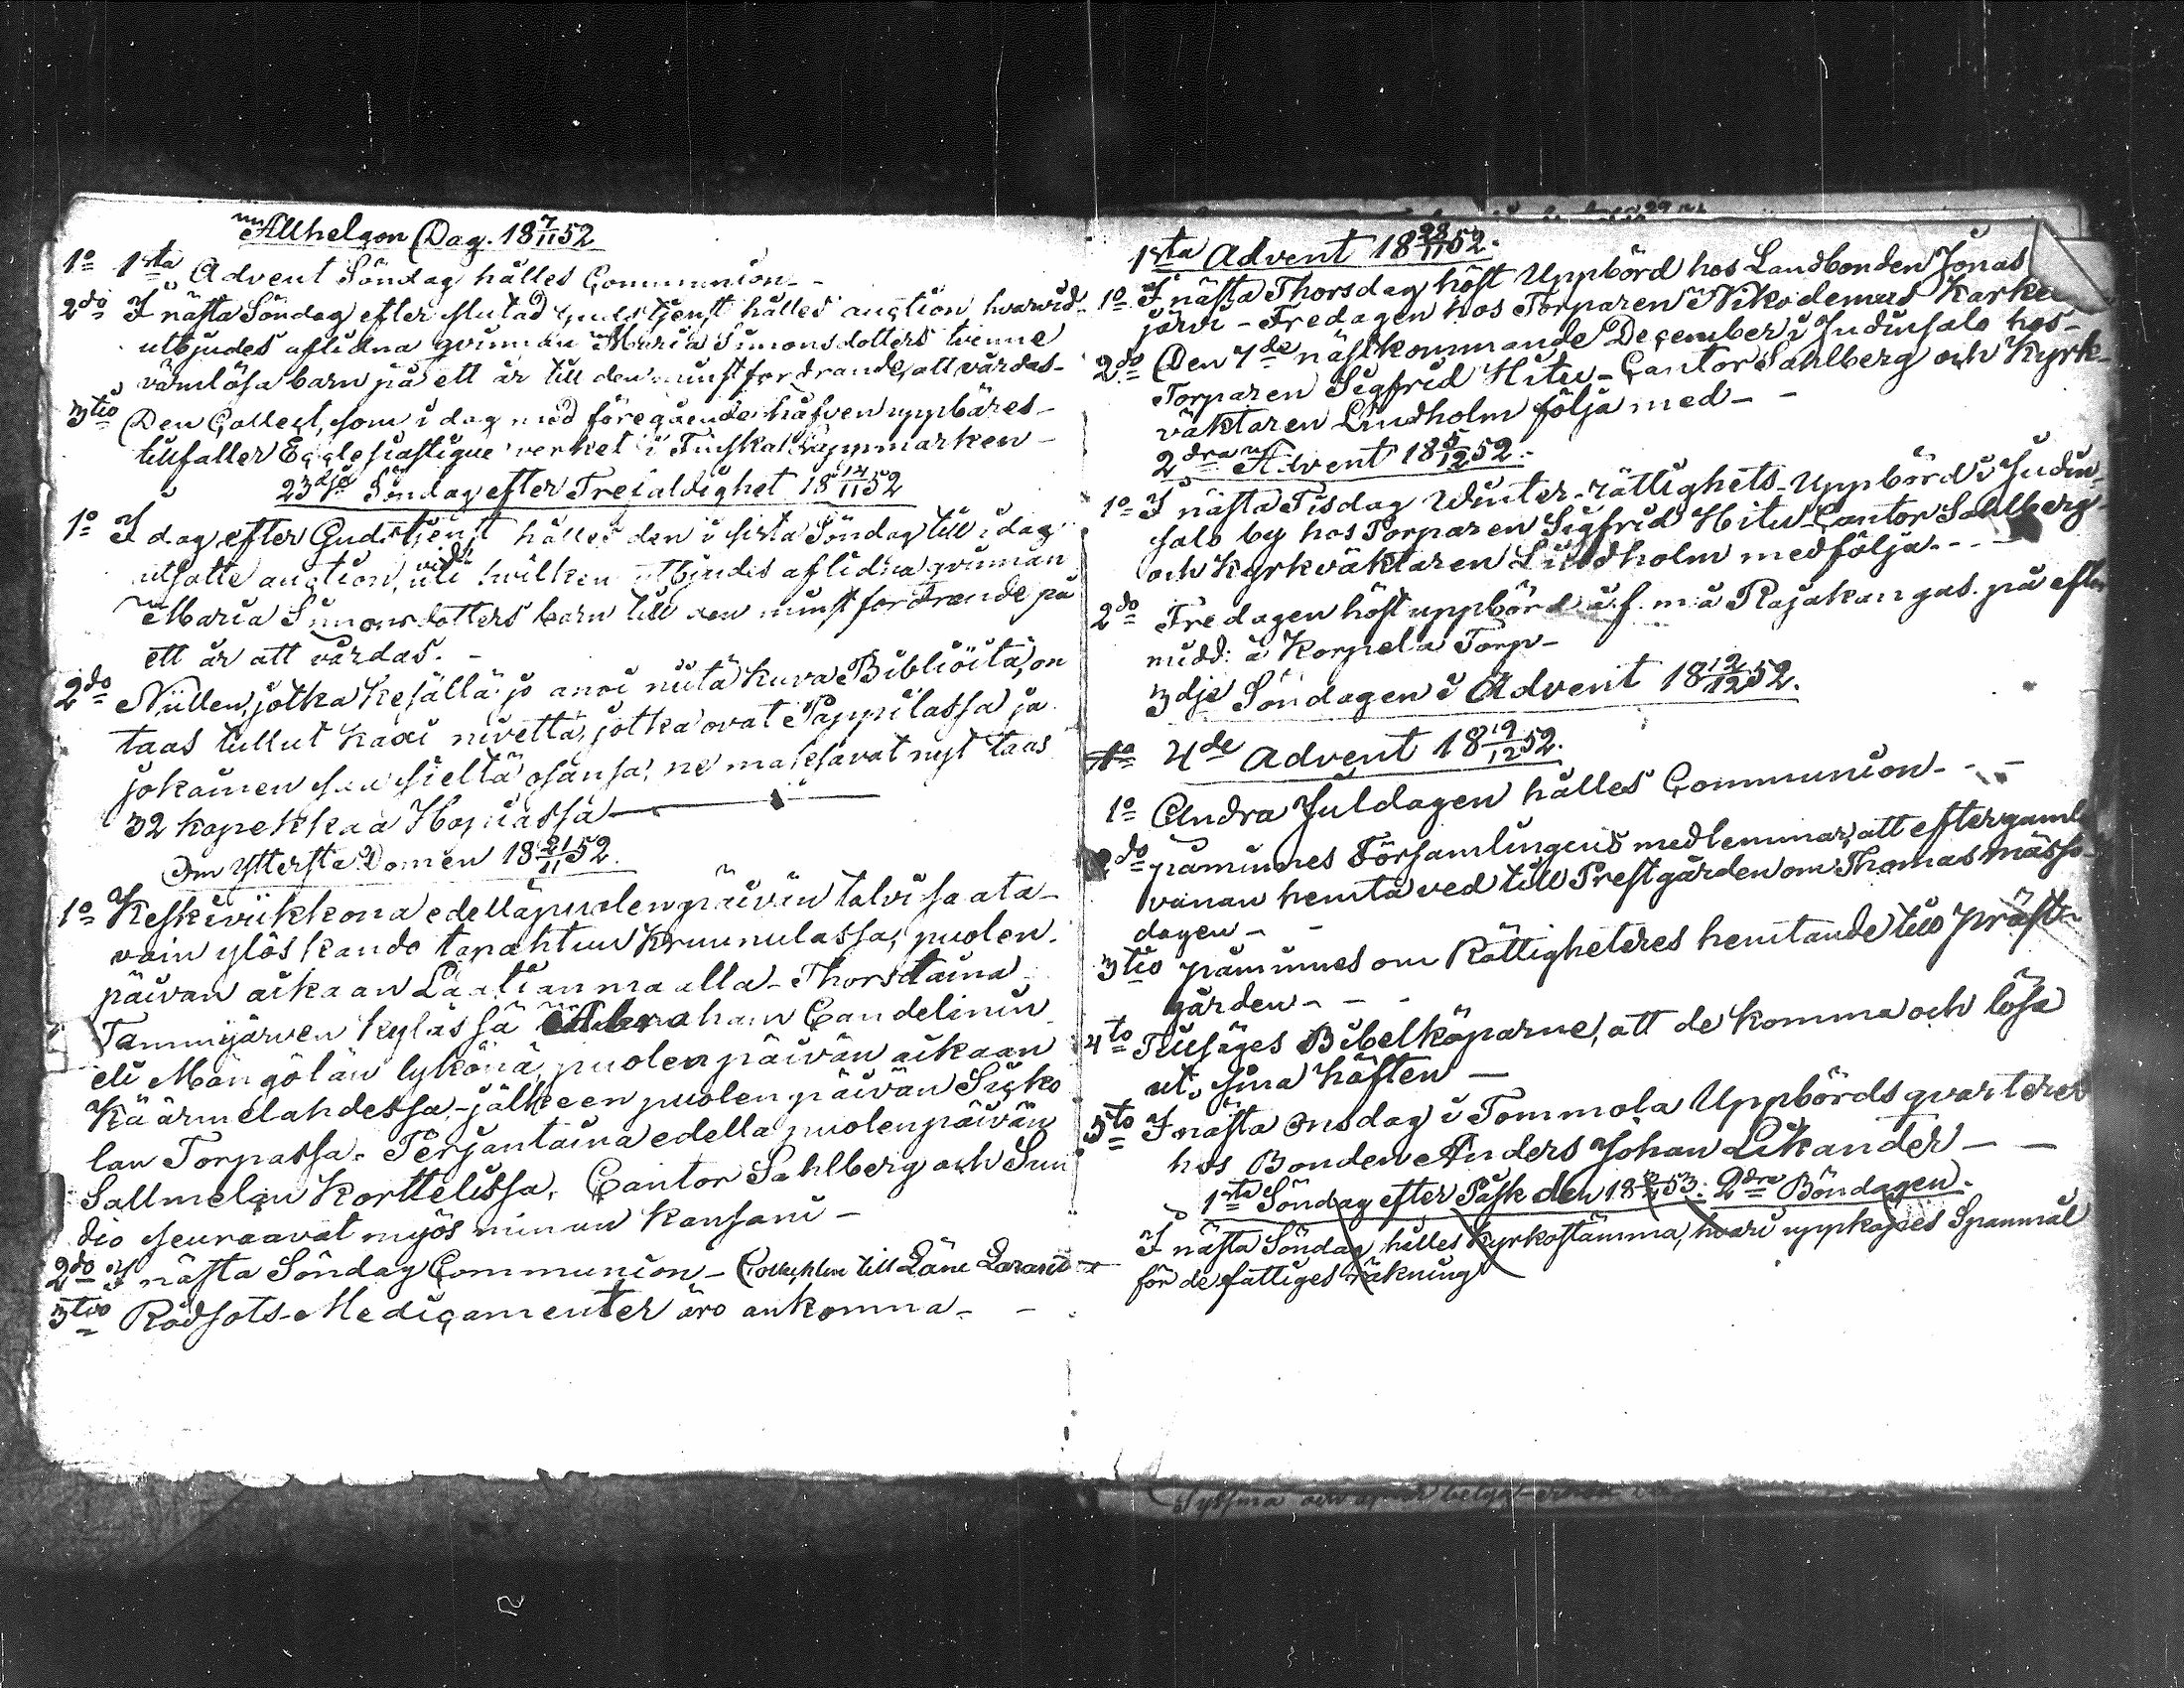 Allhelgon Dag. 18 7/11 52
1o 1sta Advent Söndag hålles Communion -
2do I nästa Söndag efter slutad Gudstjenst hålles auction, hvarvid
utbjudes aflidna qvinnan Maria Simonsdotters tvenne
värnlösa barn på ett år till den minstfordrande, att vårdas -
3tio Den Collect, som i dag med föregående håfven uppbäres -
tillfaller Ecclesiastique verket i Finska Lappmarken -
23dje Söndag efter Trefaldighet 18 14/11 52
1o I dag efter Gudstjenst hålles den i sista Söndag till i dag
utsatte auction, vid hvilken utbjudes aflidna qvinnan
Maria Simonsdotters barn till den minst fordrande på
ett år att vårdas. -
2do Niillen, jotka kesällä jo anoi niitä kuva Bibliöitä, on
taas tullut kaxi nivettä, jotka ovat Pappilassa ja
jokainen saa sieltä osansa; ne maksavat nyt taas
32 kopekkaa Hopiassa
Om Yttersta Domen 18 21/11 52.
1o Keskiviikkona edelläpuolenpäivän talvisaata-
vain ylöskando tapahtuu Kruunulassa, puolen
päivän aikaan Laatianmaalla - Thorstaina
Tammijärven kylässä Abraham Candelinin
eli Mängölän lykönä, puolenpäivän aikaan
Käärmelahdessa, - jälkeen puolenpäivän Sisko
lan Torpassa. Perjantaina edellä puolenpäivän
Sallmelan Korttelissa, Cantor Sahlberg och Sun
dio seuraavat myös minun kansani -
2do I nästa Söndag Communion - Collecten till Läns Lazarett
3tio Rödsots-Medicamenter äro ankomna - -
1sta Advent 18 28/11 52.
1o I nästa Thorsdag höst Uppbörd hos Landbonden Jonas
järvi - Fredagen hos Torparen Nikodemus
2do Den 7de nästkommande December i Judinsalo hos -
Torparen Sigfrid Hitu - Cantor Sahlberg och Kyrk-
väktaren Lindholm följa med - -
2dra Advent 18 5/12 52.
1o I nästa Tisdag Winter-rättighets-Uppbörd i Judin-
salo by hos Torparen Sigfrid Hitu - Cantor Sahlberg
och Kyrkväktaren Lindholm medfölja. - -
2do Fredagen höst uppbörd å f. m. å Rajakangas. på efter
midd: å Korpela Torp -
3dje Söndagen i Advent 18 12/12 52.
4de Advent 18 19/12 52.
1o Andra Juldagen hålles Communion - - -
2do påminnes Församlingens medlemmar, att efter gamla
vanan hemta ved till Prestgården om Thomasmässo-
dagen - -
3tio påminnes om Rättigheters hemtande till Präst-
gården - - -
4to Tillsäges Bibelköparne, att de komma och lösa
ut sina häften -
5to I nästa Onsdag i Tommola Uppbördsqvarteret
hos Bonden Anders Johan Likander - -
1sta Söndag efter Påsk den 18 53. 2dra Böndagen.
I nästa Söndag hålles Kyrkostämma, hvari uppköpes Spannmål
för de fattiges räkning